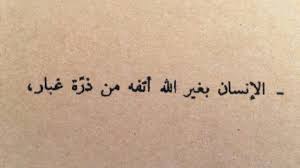 - الإنسان بغير الله أتفه من ذرّة غبار،